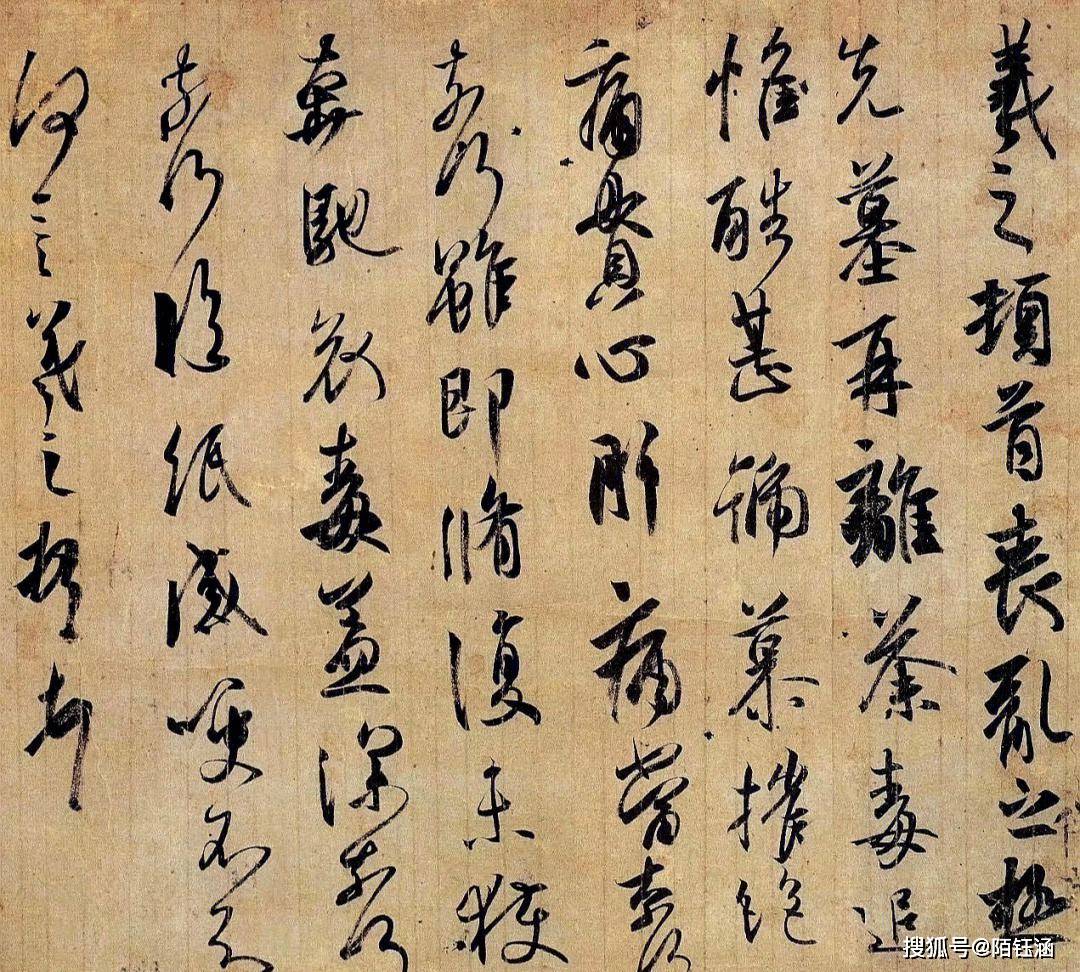 羲之頓首喪亂之極
先墓再離荼毒追
惟酷甚號慕摧絶
痛貫心肝痛當奈何
奈何雖即脩復未獲
奔馳哀毒益深奈何
奈何臨紙感哽不知
何言羲之頓首頓首
搜狐号@陌钰涵